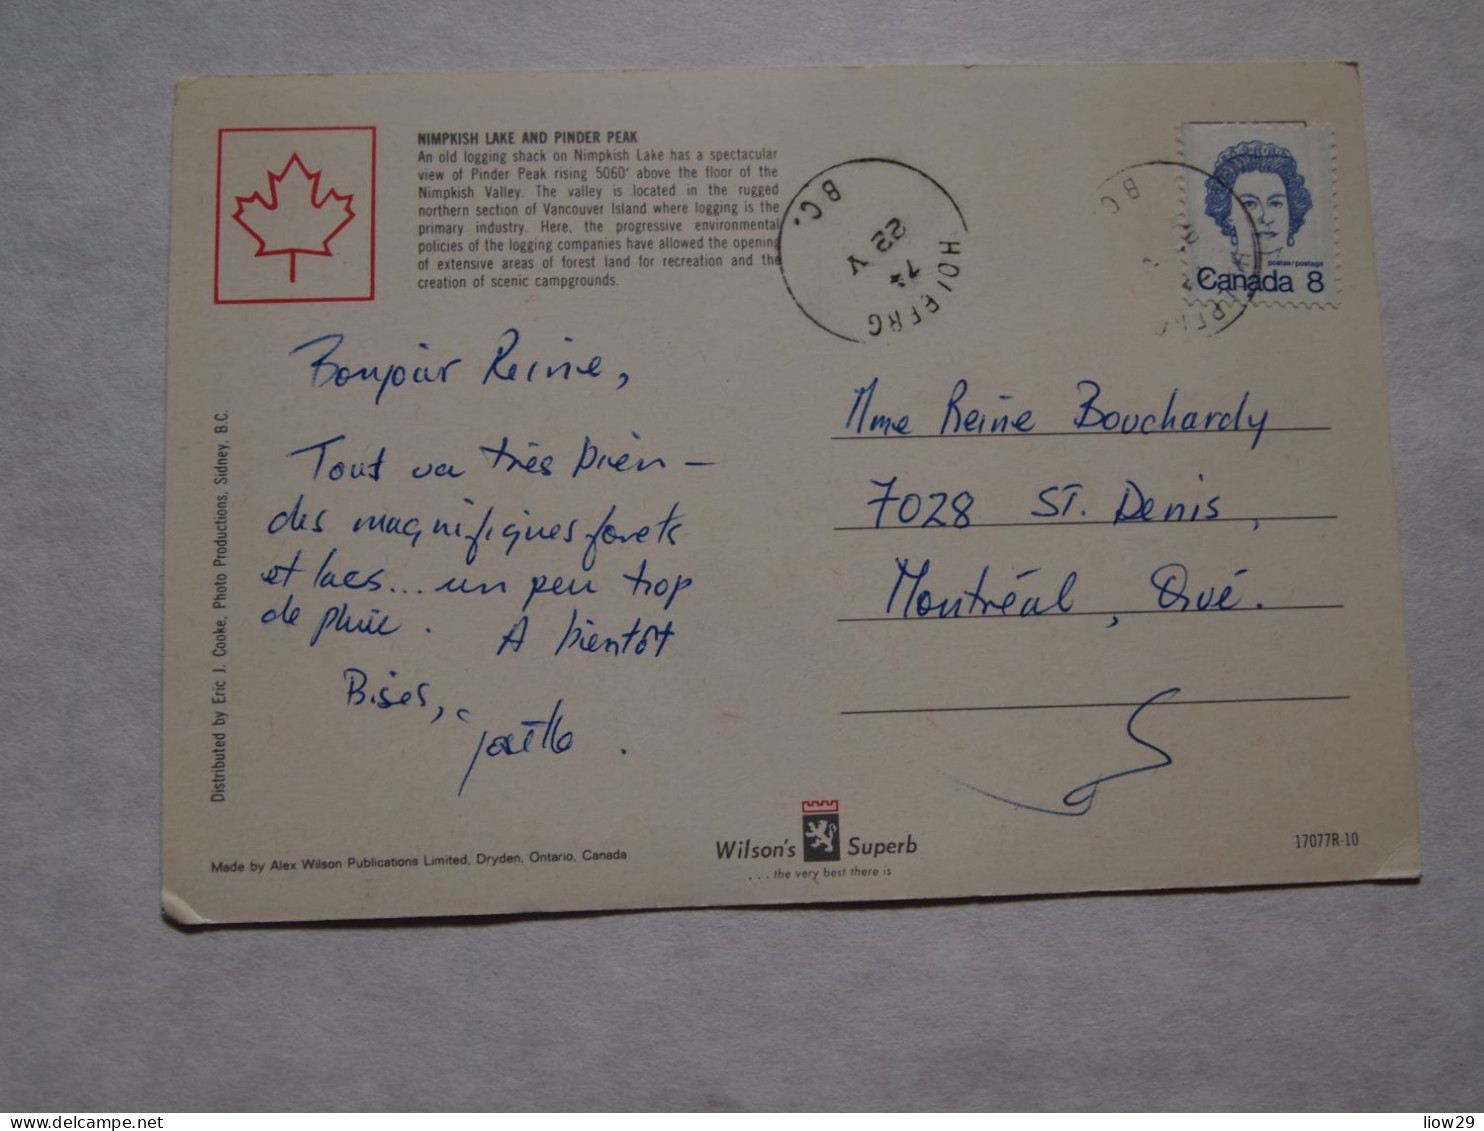 NIMPKISH LAKE AND PINDER PEAK
An old logging shack on Nimpkish Lake has a spectacular
view of Pinder Peak rising 5060′ above the floor of the
Nimpkish Valley. The valley is located in the rugged
northern section of Vancouver Island where logging is the
primary industry. Here, the progressive environmental
policies of the logging companies have allowed the opening
of extensive areas of forest land for recreation and the
creation of scenic campgrounds.
HOLBERG
B.C.
22 V
postes/postage
Canada 8
Bonjour Reine,
Tout va très bien –
des magnifiques forets
et lacs... un peu trop
de pluie. A bientôt
Bises,
Joëlle.
Mme Reine Bouchardy
7028 ST. Denis,
Montréal, Qué.
Distributed by Eric J. Cooke, Photo Productions, Sidney, B.C.
Made by Alex Wilson Publications Limited, Dryden, Ontario, Canada
Wilson's Superb
...the very best there is
17077R-10
liow29